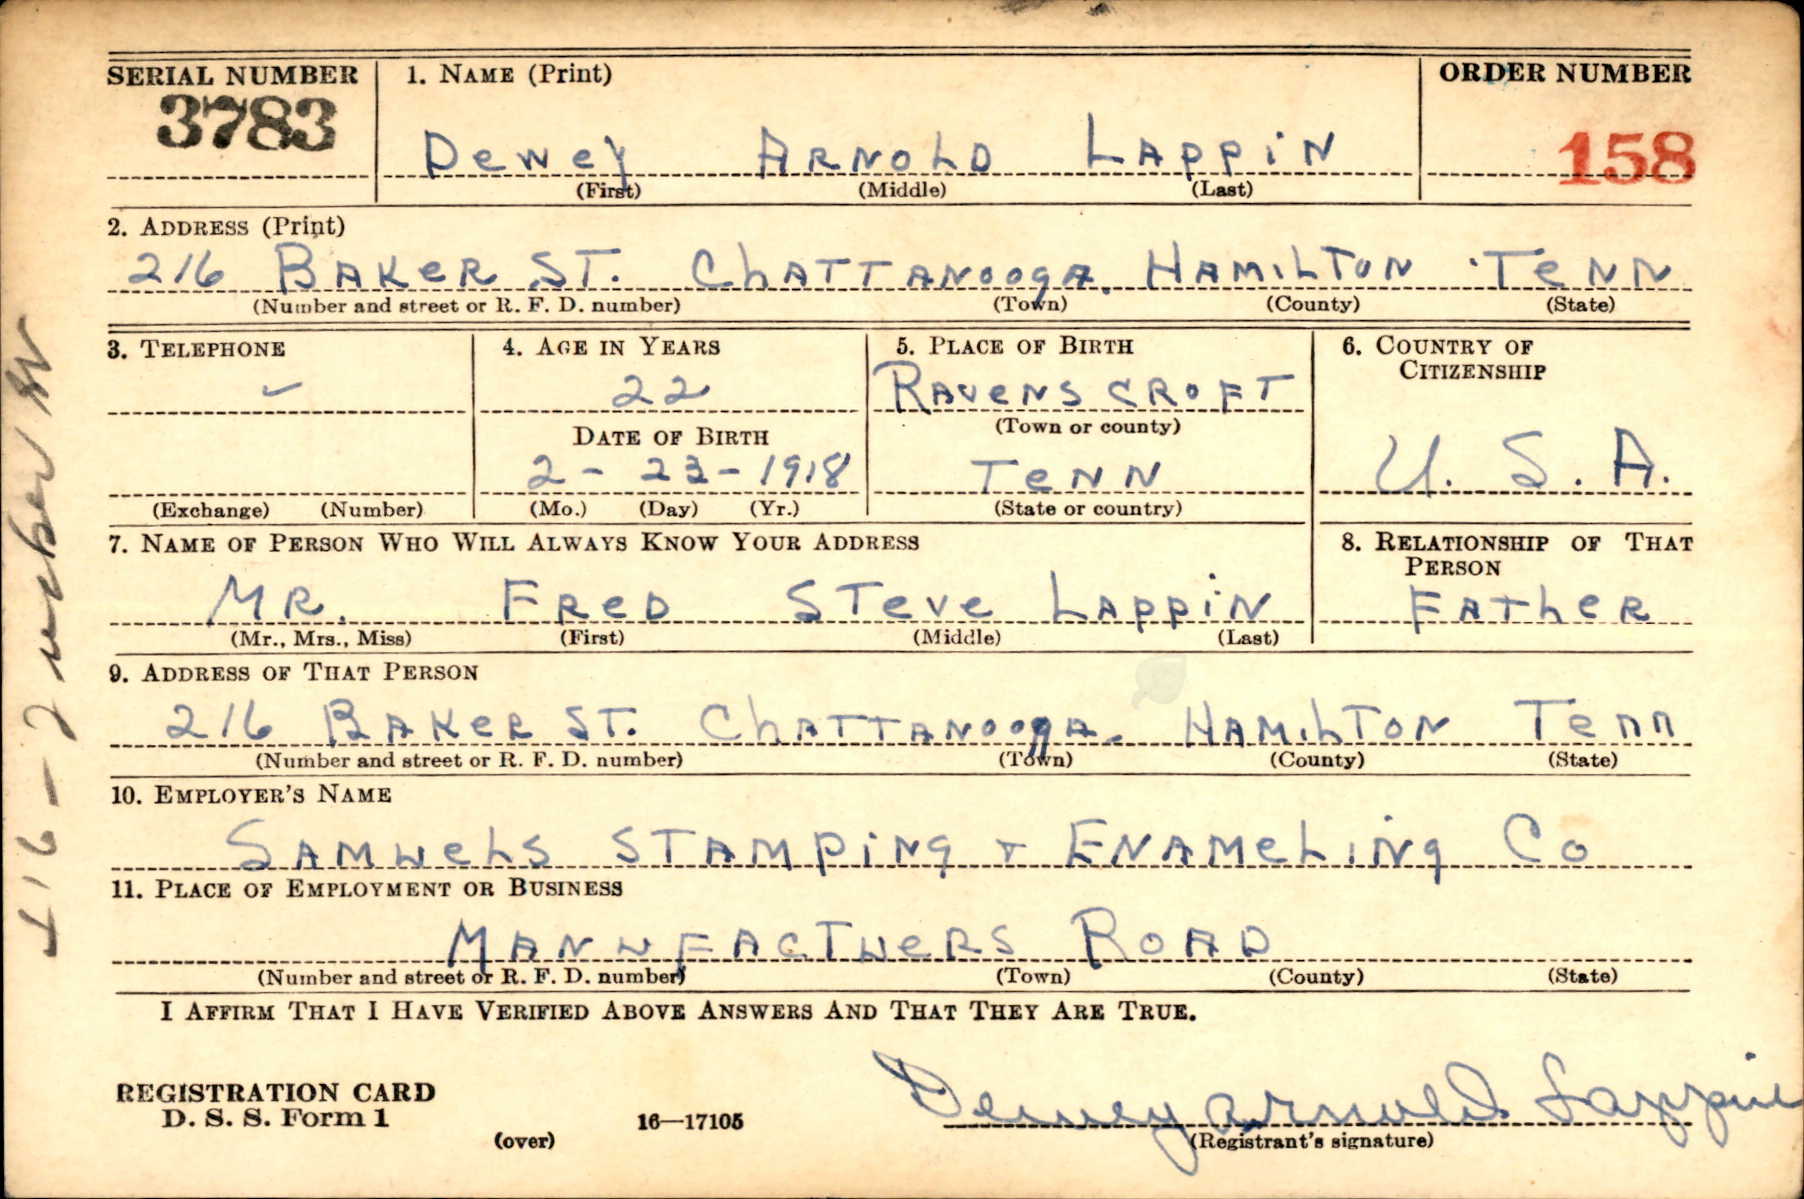 SERIAL NUMBER 1. NAME (Print) ORDER NUMBER
3783 Dewey ARNOLD LAPPiN 158
(First) (Middle) (Last)
2. ADDRESS (Print)
216 BAKeR ST. ChATTANOOgA. HAMiLTON TeNN
(Number and street or R. F. D. number) (Town) (County) (State)
3. TELEPHONE 4. AGE IN YEARS 5. PLACE OF BIRTH 6. COUNTRY OF CITIZENSHIP
22 RAVeNSCROFT
DATE OF BIRTH (Town or county)
2 - 23 - 1918 TeNN U. S. A.
(Exchange) (Number) (Mo.) (Day) (Yr.) (State or country)
7. NAME OF PERSON WHO WILL ALWAYS KNOW YOUR ADDRESS 8. RELATIONSHIP OF THAT PERSON
MR. FReD STeve LAPPiN FATheR
(Mr., Mrs., Miss) (First) (Middle) (Last)
9. ADDRESS OF THAT PERSON
216 BAKeR ST. ChATTANOOgA. HAMiLTON Tenn
(Number and street or R. F. D. number) (Town) (County) (State)
10. EMPLOYER'S NAME
SAMueLS STAMPiNg + ENAMeLiNg Co
11. PLACE OF EMPLOYMENT OR BUSINESS
MANuFACTueRS ROAD
(Number and street or R. F. D. number) (Town) (County) (State)
I AFFIRM THAT I HAVE VERIFIED ABOVE ANSWERS AND THAT THEY ARE TRUE.
REGISTRATION CARD
D. S. S. Form 1 16—17105 Dewey Arnold Lappin
(over) (Registrant's signature)